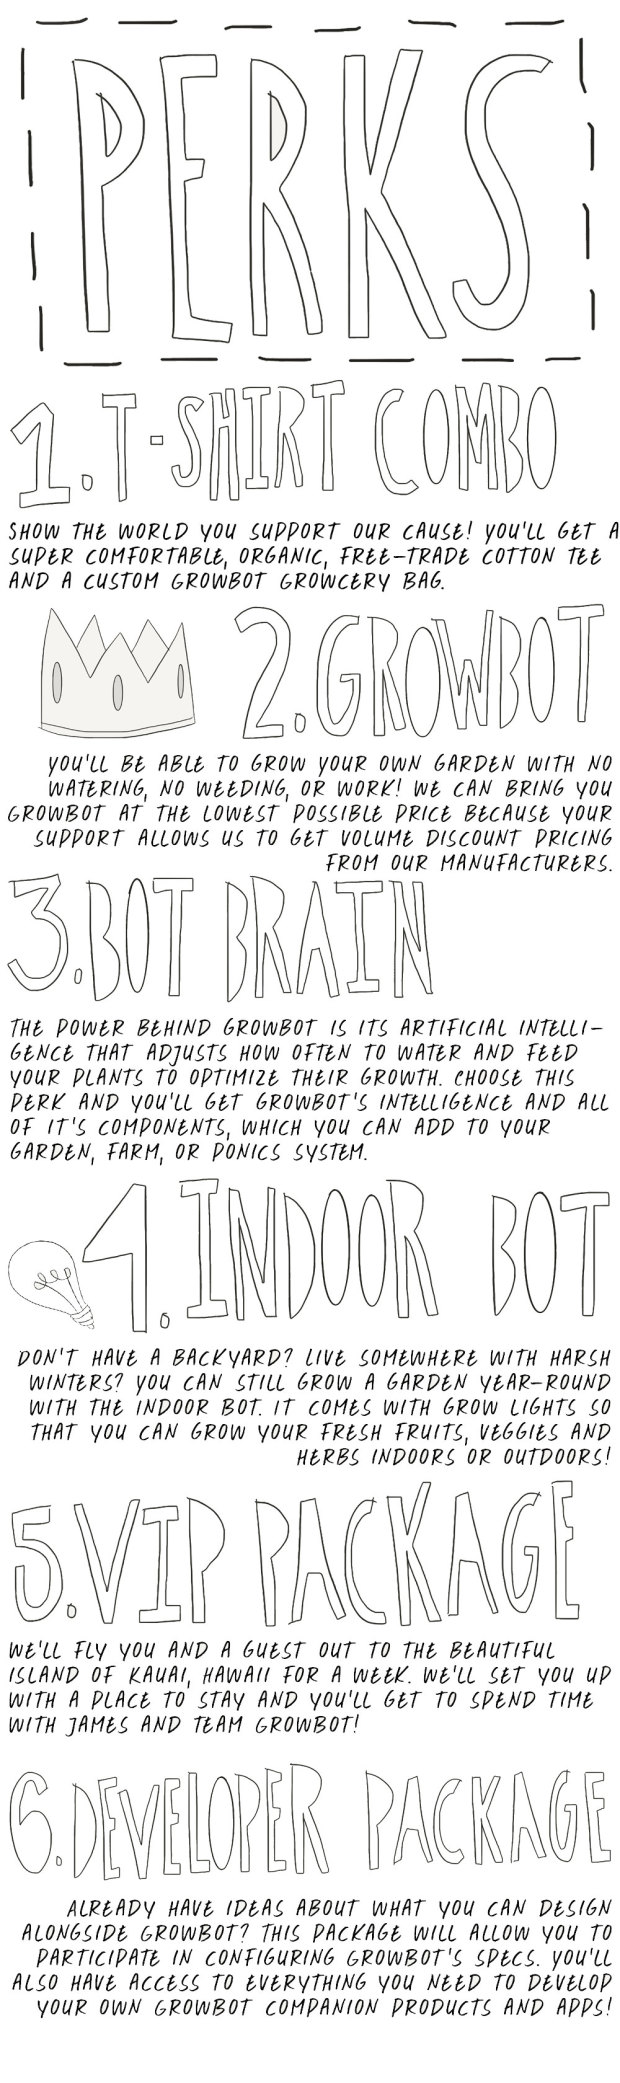 PERKS
1. T-SHIRT COMBO
SHOW THE WORLD YOU SUPPORT OUR CAUSE! YOU'LL GET A
SUPER COMFORTABLE, ORGANIC, FREE-TRADE COTTON TEE
AND A CUSTOM GROWBOT GROWCERY BAG.
2. GROWBOT
YOU'LL BE ABLE TO GROW YOUR OWN GARDEN WITH NO
WATERING, NO WEEDING, OR WORK! WE CAN BRING YOU
GROWBOT AT THE LOWEST POSSIBLE PRICE BECAUSE YOUR
SUPPORT ALLOWS US TO GET VOLUME DISCOUNT PRICING
FROM OUR MANUFACTURERS.
3. BOT BRAIN
THE POWER BEHIND GROWBOT IS ITS ARTIFICIAL INTELLI-
GENCE THAT ADJUSTS HOW OFTEN TO WATER AND FEED
YOUR PLANTS TO OPTIMIZE THEIR GROWTH. CHOOSE THIS
PERK AND YOU'LL GET GROWBOT'S INTELLIGENCE AND ALL
OF IT'S COMPONENTS, WHICH YOU CAN ADD TO YOUR
GARDEN, FARM, OR PONICS SYSTEM.
4. INDOOR BOT
DON'T HAVE A BACKYARD? LIVE SOMEWHERE WITH HARSH
WINTERS? YOU CAN STILL GROW A GARDEN YEAR-ROUND
WITH THE INDOOR BOT. IT COMES WITH GROW LIGHTS SO
THAT YOU CAN GROW YOUR FRESH FRUITS, VEGGIES AND
HERBS INDOORS OR OUTDOORS!
5. VIP PACKAGE
WE'LL FLY YOU AND A GUEST OUT TO THE BEAUTIFUL
ISLAND OF KAUAI, HAWAII FOR A WEEK. WE'LL SET YOU UP
WITH A PLACE TO STAY AND YOU'LL GET TO SPEND TIME
WITH JAMES AND TEAM GROWBOT!
6. DEVELOPER PACKAGE
ALREADY HAVE IDEAS ABOUT WHAT YOU CAN DESIGN
ALONGSIDE GROWBOT? THIS PACKAGE WILL ALLOW YOU TO
PARTICIPATE IN CONFIGURING GROWBOT'S SPECS. YOU'LL
ALSO HAVE ACCESS TO EVERYTHING YOU NEED TO DEVELOP
YOUR OWN GROWBOT COMPANION PRODUCTS AND APPS!